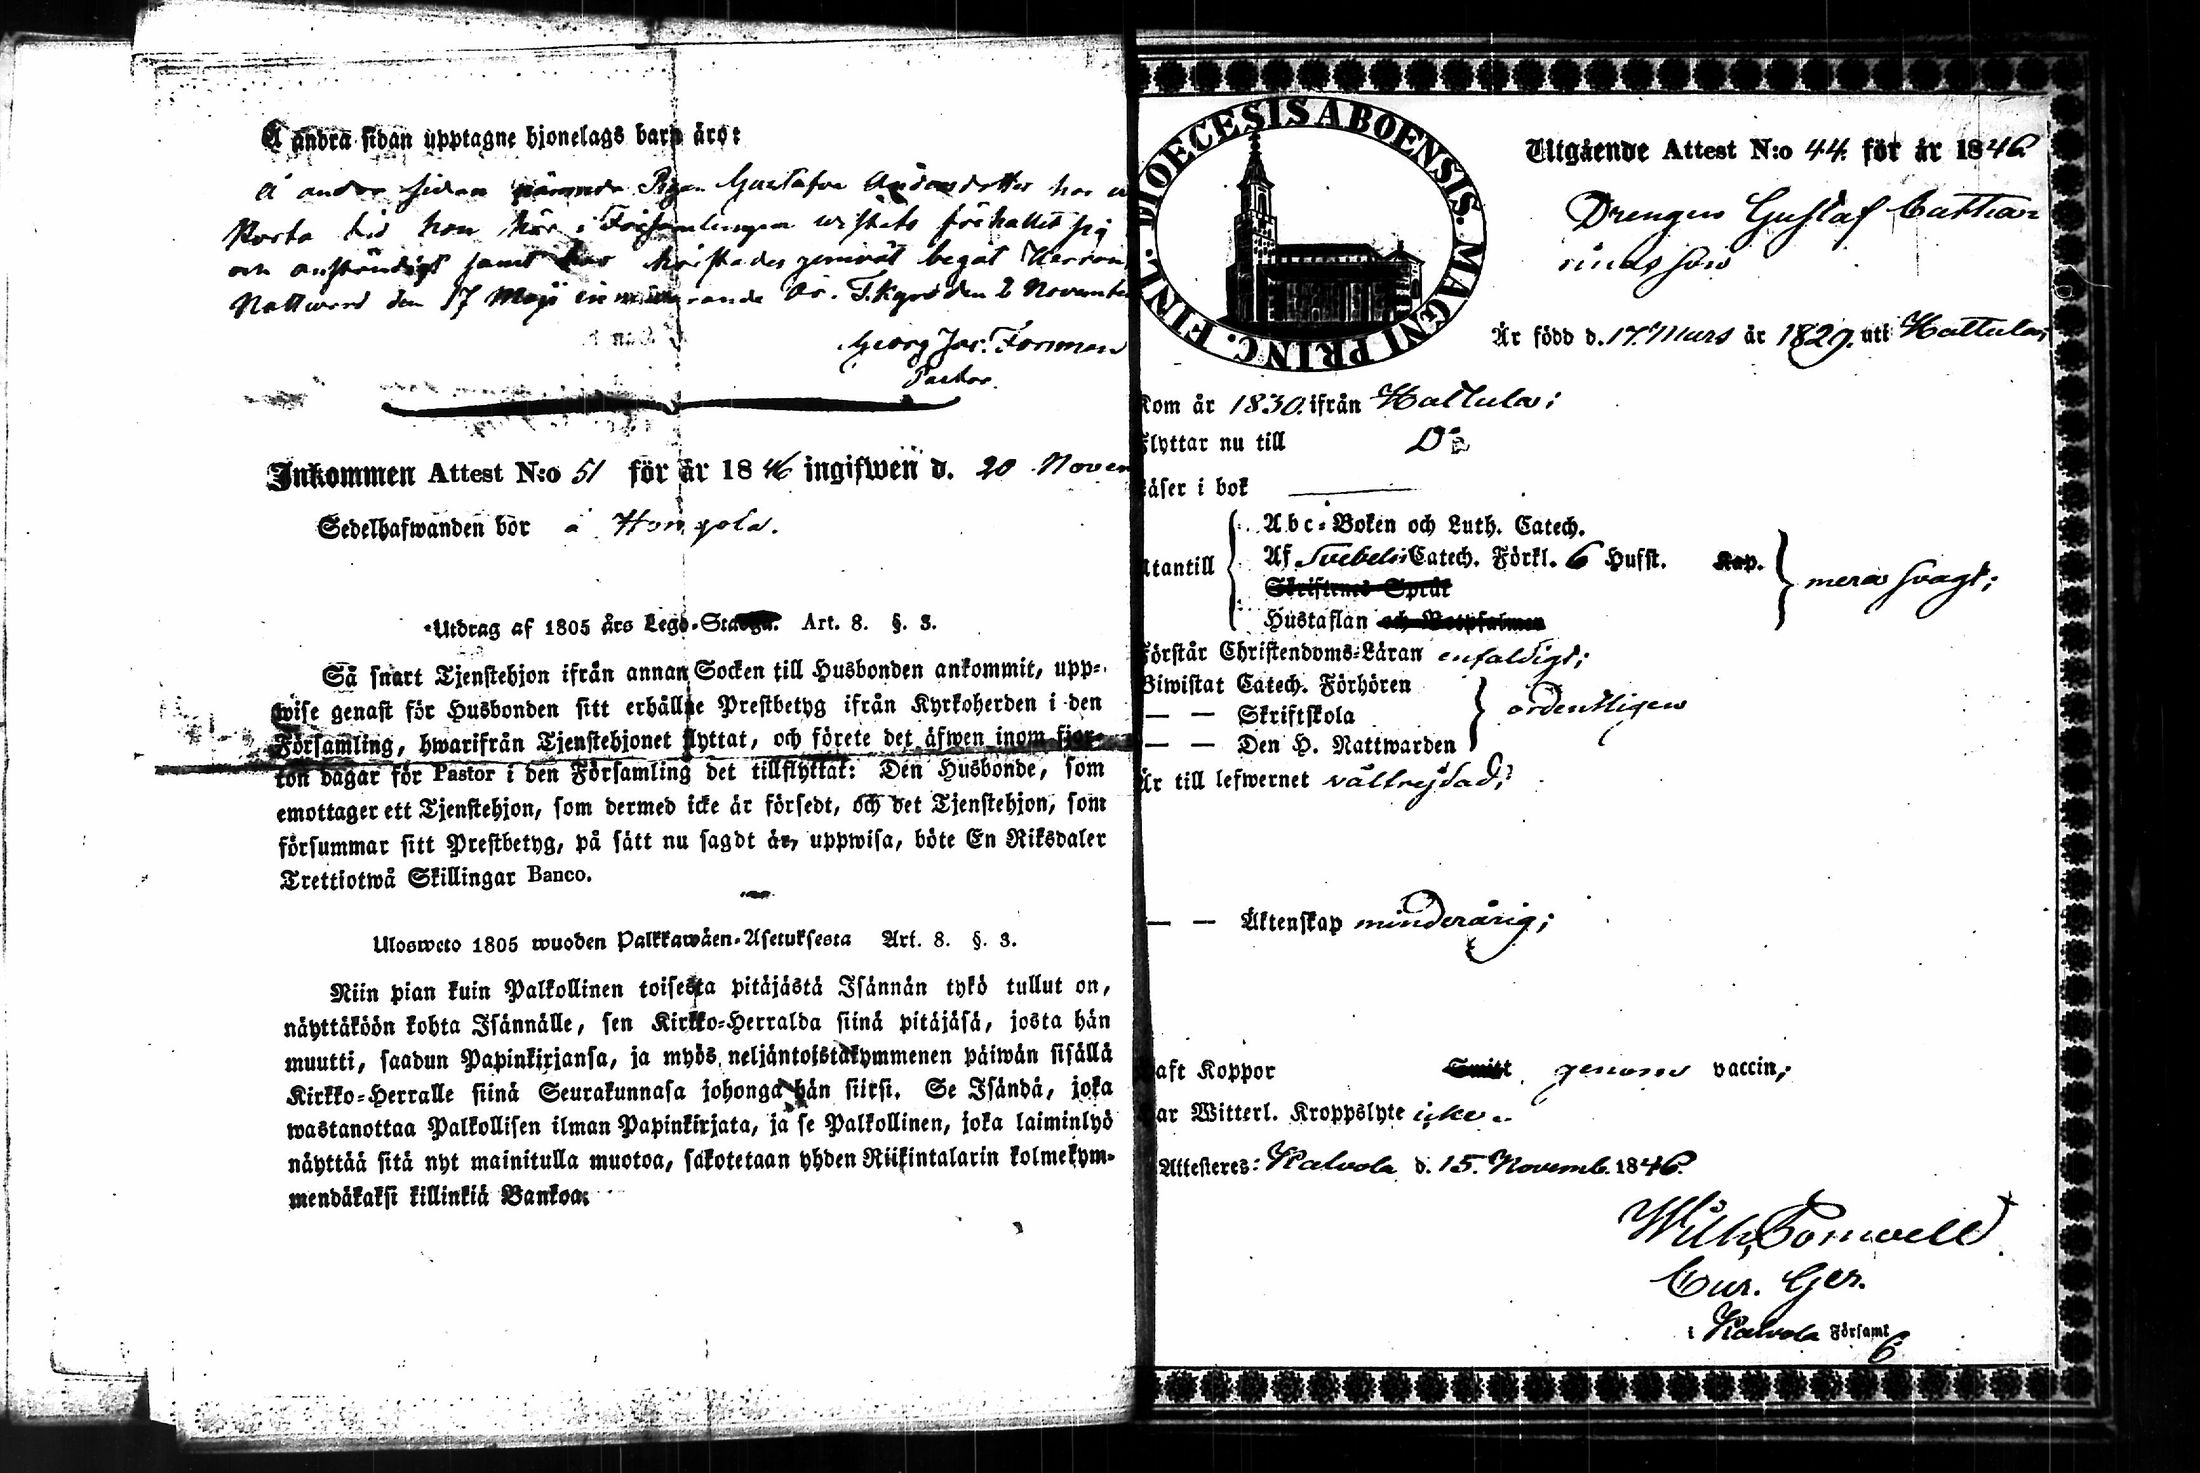 Å andra sidan upptagne hjonelags barn äro:
å andra sidan nämnde Pigan Gustafva Andersdotter har
Korta tid hon här i Församlingen vistats förhållit sig
och anständigt samt har begåt Herrans
Nattward den 17 Maji innewarande År. T.Kyrö den 2 November
Georg Jac. Forsman
Pastor.
Inkommen Attest N:o 51 för år 1846 ingifwen d. 20 Novem
Sedelhafwanden bor å Hongola.
Utdrag af 1805 års Lego-Stadga. Art. 8. §. 3.
Så snart Tjenstehjon ifrån annan Socken till Husbonden ankommit, upp=
wise genast för Husbonden sitt erhållne Prestbetyg ifrån Kyrkoherden i den
Församling, hwarifrån Tjenstehjonet flyttat, och förete det äfwen inom fjor=
ton dagar för Pastor i den Församling det tillflyttat: Den Husbonde, som
emottager ett Tjenstehjon, som dermed icke är försedt, och det Tjenstehjon, som
försummar sitt Prestbetyg, på sätt nu sagdt är, uppwisa, böte En Riksdaler
Trettiotwå Skillingar Banco.
Ulosweto 1805 wuoden Palkkawäen-Asetuksesta Art. 8. §. 3.
Niin pian kuin Palkollinen toisesta pitäjästä Isännän tykö tullut on,
näyttäköön kohta Isännälle, sen Kirkko=Herralda siinä pitäjäsä, josta hän
muutti, saadun Papinkirjansa, ja myös neljäntoistakymmenen päiwän sisällä
Kirkko=Herralle siinä Seurakunnasa johonga hän siirsi. Se Isändä, joka
wastanottaa Palkollisen ilman Papinkirjata, ja se Palkollinen, joka laiminlyö
näyttää sitä nyt mainitulla muotoa, sakotetaan yhden Riikintalarin kolmekym-
mendäkaksi killinkiä Bankoa.
DIOECESIS ABOENSIS. MAGNI PRINC. FINL.
Utgående Attest N:o 44. för år 1846
Drengen Gustaf Cathari
rinas son
Är född d. 17. Mars år 1829. uti Hattula;
Kom år 1830. ifrån Hattula;
Flyttar nu till D:o
Läser i bok
Utantill
Abc=Boken och Luth. Catech.
Af Svebelii Catech. Förkl. 6 Hufst. Kap.
Skriftenes Språk
Hustaflan och Botpsalmer
mera svagt;
Förstår Christendoms=Läran enfaldigt;
Biwistat Catech. Förhören
— — Skriftskola
— — Den H. Nattwarden
ordentligen
Är till lefwernet välfrejdad;
— — Äktenskap minderårig;
Haft Koppor Smitt genom vaccin;
Har Witterl. Kroppslyte icke.
Attesteres: Kalvola d. 15. Novemb. 1846.
Wilh.
Cur. Ger.
i Kalvola Församl.
6